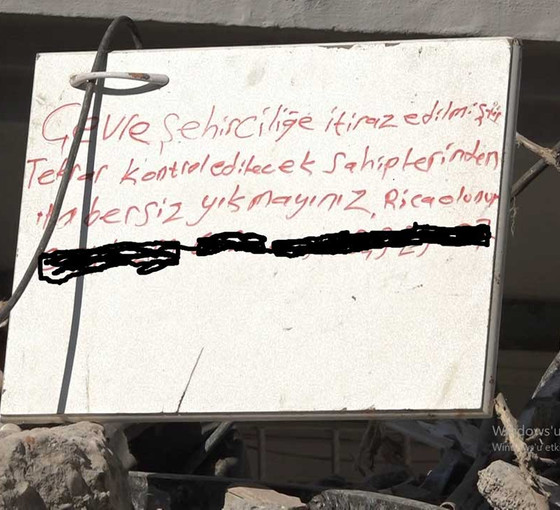 Çevre Şehirciliğe itiraz edilmiştir
Tekrar kontrol edilecek sahiplerinden
habersiz yıkmayınız. Rica olunur
Windows'u
Windows'u etk